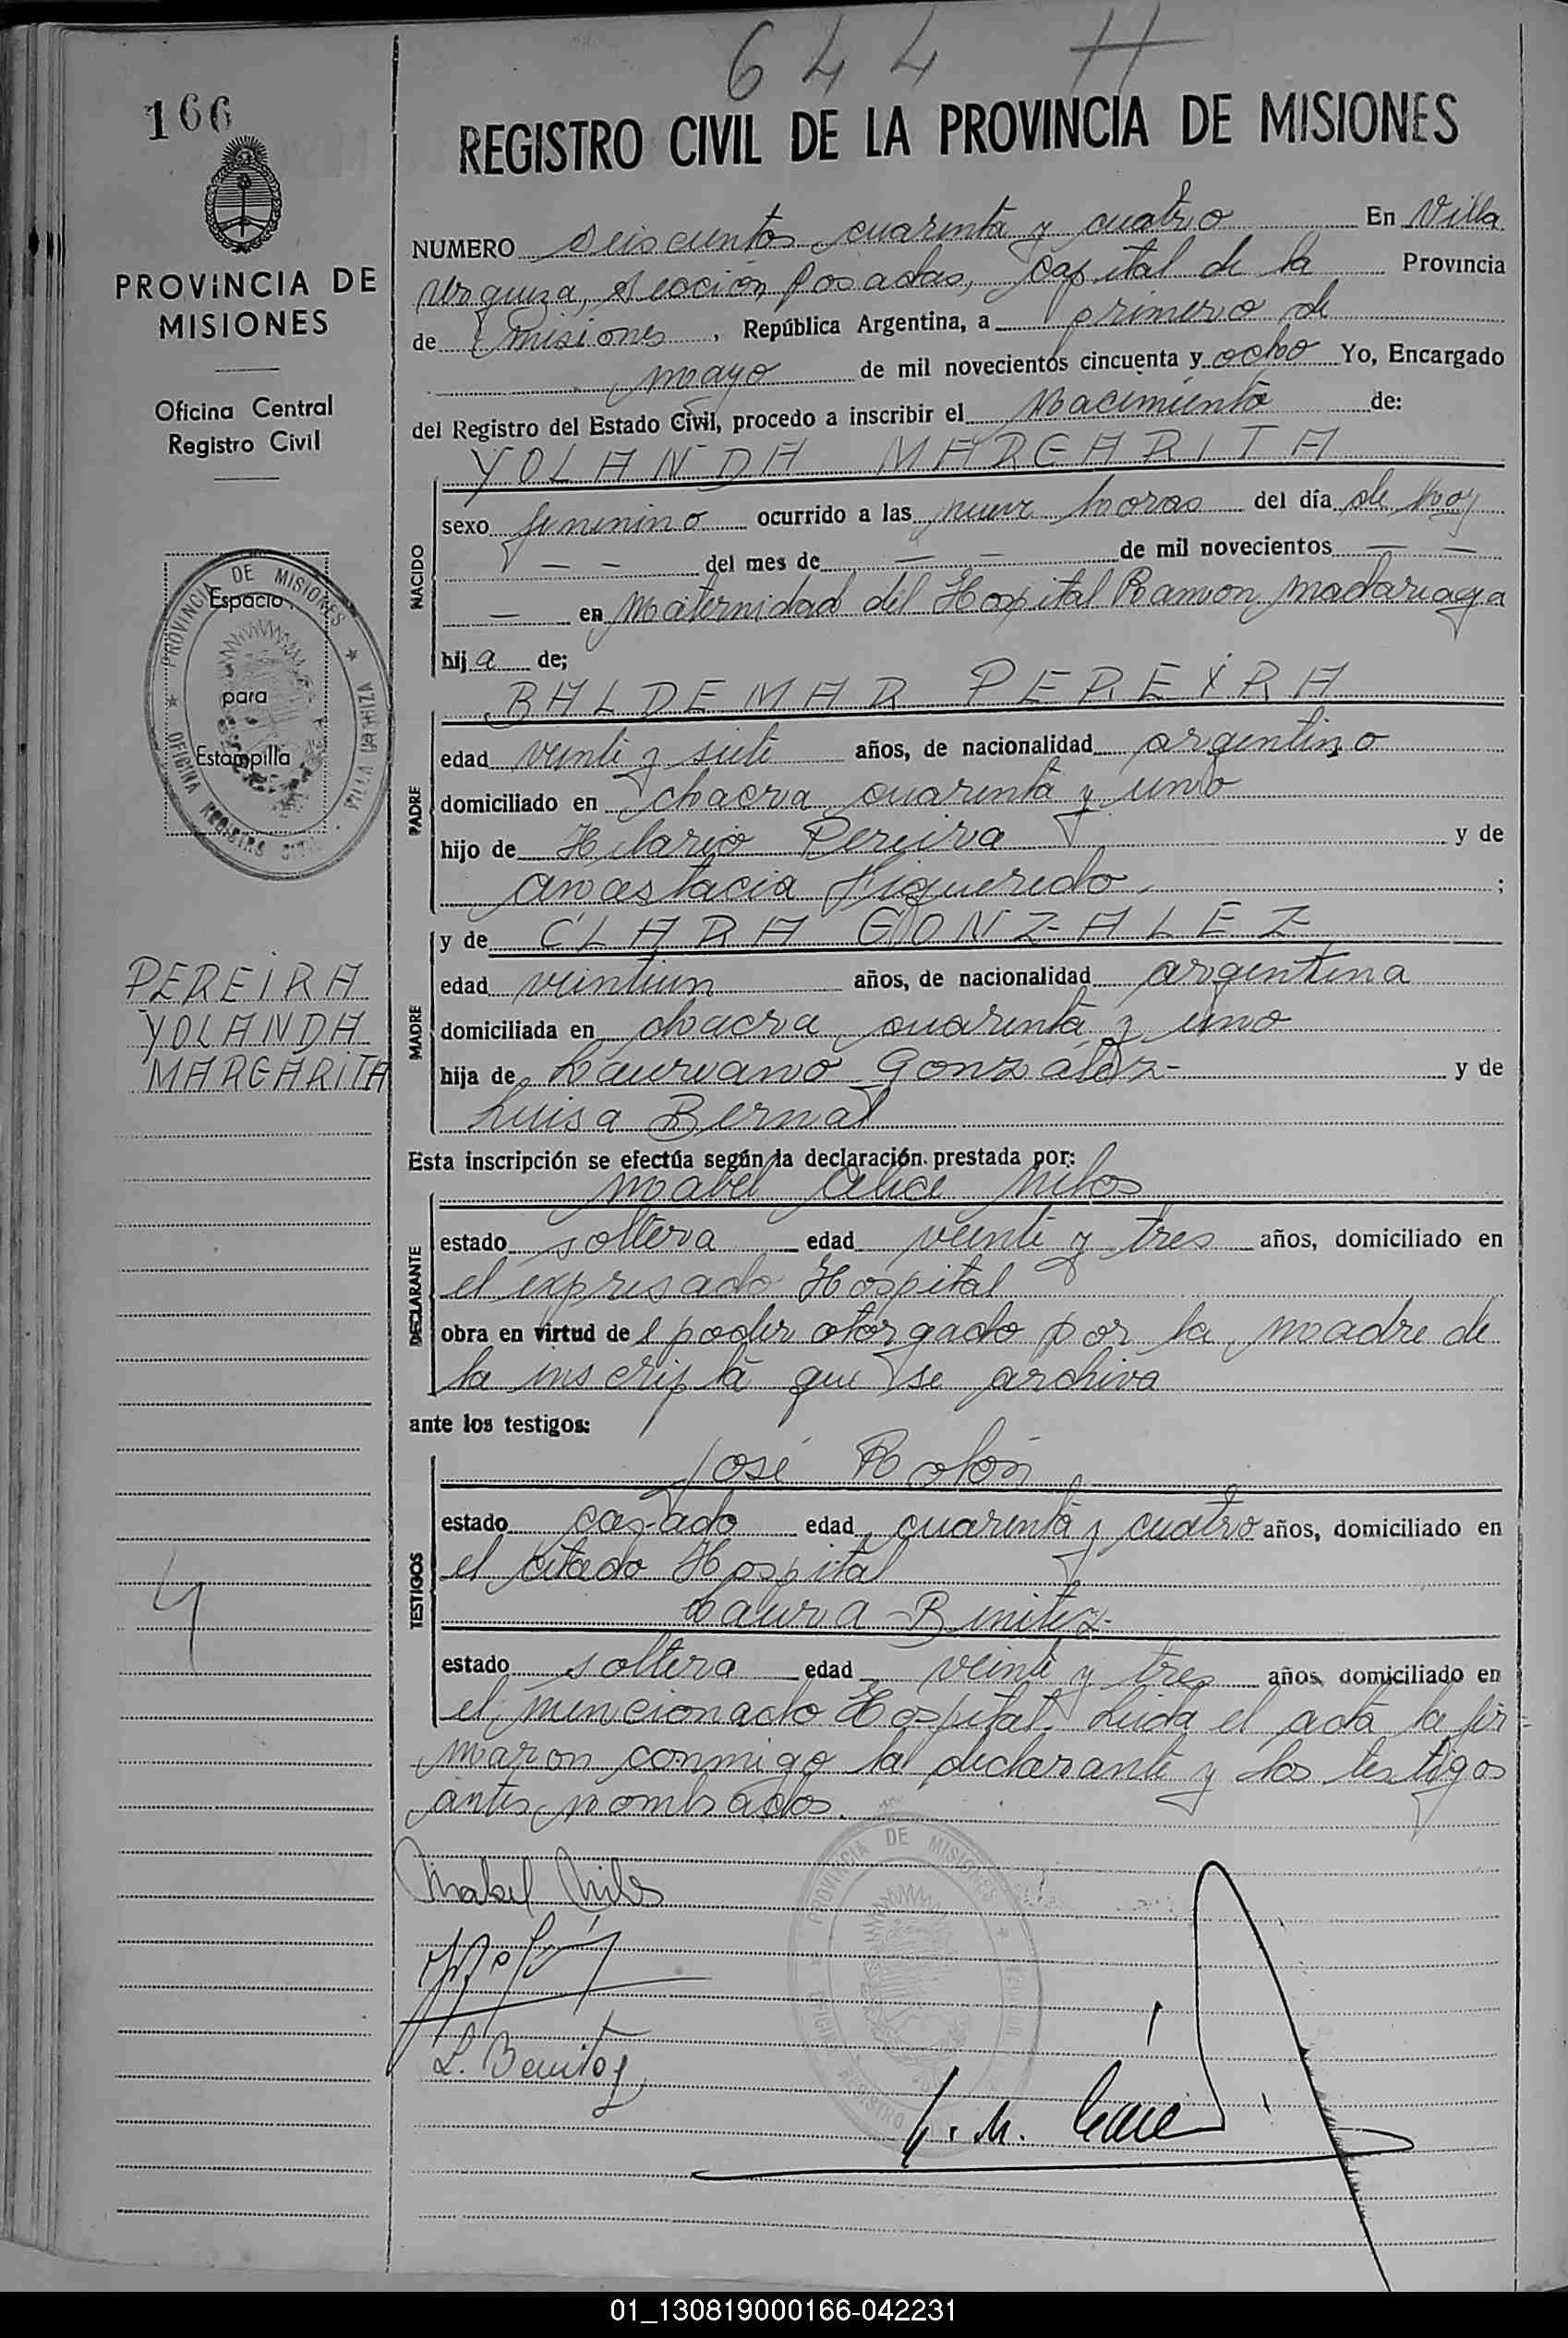 644 H
166
REGISTRO CIVIL DE LA PROVINCIA DE MISIONES
PROVINCIA DE
MISIONES
Oficina Central
Registro Civil
PROVINCIA DE MISIONES * VILLA URQUIZA * OFICINA REGISTRO CIVIL
Espacio
para
Estampilla
PEREIRA
YOLANDA
MARGARITA
4
NUMERO seiscientos cuarenta y cuatro En Villa
Urquiza, sección Posadas, Capital de la Provincia
de Misiones, República Argentina, a primero de
mayo de mil novecientos cincuenta y ocho Yo, Encargado
del Registro del Estado Civil, procedo a inscribir el Nacimiento de:
YOLANDA MARGARITA
NACIDO
sexo femenino ocurrido a las nueve horas del día de hoy
— — del mes de — — de mil novecientos — —
— en Maternidad del Hospital Ramon Madariaga
hija de;
BALDEMAR PEREIRA
PADRE
edad veinte y siete años, de nacionalidad argentino
domiciliado en chacra cuarenta y uno
hijo de Hilario Pereira y de
Anastacia Figueredo ;
y de CLARA GONZALEZ
MADRE
edad veintiun años, de nacionalidad argentina
domiciliada en chacra cuarenta y uno
hija de Laureano González y de
Luisa Bernal
Esta inscripción se efectúa según la declaración prestada por:
Mabel Alice
DECLARANTE
estado soltera edad veinte y tres años, domiciliado en
el expresado Hospital
obra en virtud del poder otorgado por la madre de
la inscripta que se archiva
ante los testigos:
José Rolón
TESTIGOS
estado casado edad cuarenta y cuatro años, domiciliado en
el citado Hospital
Laura Benitez
estado soltera edad veinte y tres años, domiciliado en
el mencionado Hospital. Leida el acta la fir=
maron conmigo la declarante y los testigos
antes nombrados.
Mabel
L. Benitez
PROVINCIA DE MISIONES
REGISTRO
01_130819000166-042231